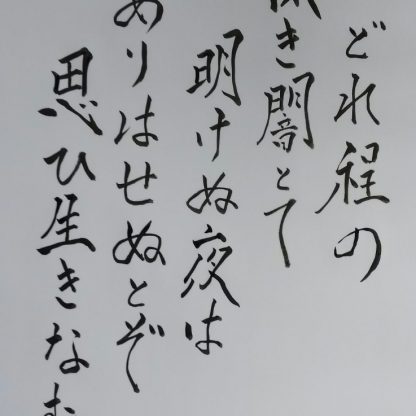 どれ程の
き闇とて
明けぬ夜は
ありはせぬとぞ
思ひ生きなむ